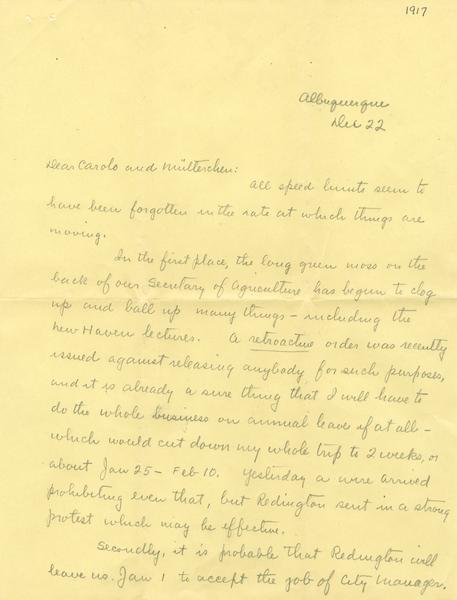 1917
Albuquerque
Dec 22
Dear Carolo and Mütterchen:
All speed limits seem to
have been forgotten in the rate at which things are
moving.
In the first place, the long green moss on the
back of our Secretary of Agriculture has begun to clog
up and ball up many things – including the
New Haven lectures. A retroactive order was recently
issued against releasing anybody for such purposes,
and it is already a sure thing that I will have to
do the whole business on annual leave if at all –
which would cut down my whole trip to 2 weeks, or
about Jan 25 – Feb 10. Yesterday a wire arrived
prohibiting even that, but Redington sent in a strong
protest which may be effective.
Secondly, it is probable that Redington will
leave us Jan 1 to accept the job of City Manager.